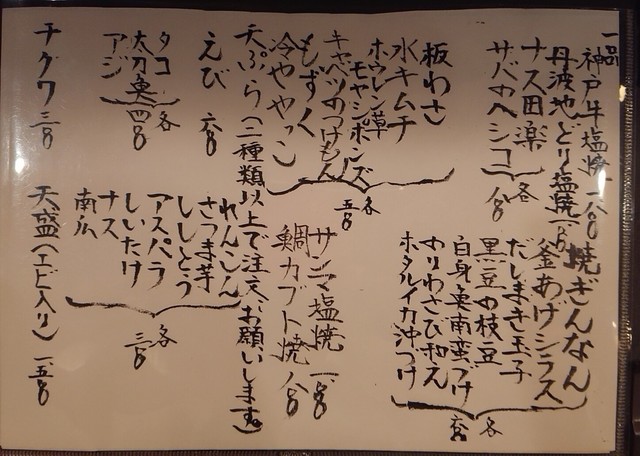 一品
神戸牛塩焼
丹波地どり塩焼
ナス田楽
サバのヘシコ
各
板わさ
水キムチ
ホウレン草
モヤシポンズ
キャベツのつけもん
もずく
冷ややっこ
各
五〇
焼ぎんなん
釜あげシラス
だしまき玉子
黒豆の枝豆
白身魚南蛮づけ
わりわさび和え
ホタルイカ沖づけ
各
サンマ塩焼
鯛カブト焼
天ぷら(二種類以上で注文お願いします。)
えび
タコ
太刀魚
アジ
各
四〇
チクワ 三〇
れんこん
さつま芋
ししとう
アスパラ
しいたけ
ナス
南瓜
各
三〇
天盛(エビ入り) 一五〇